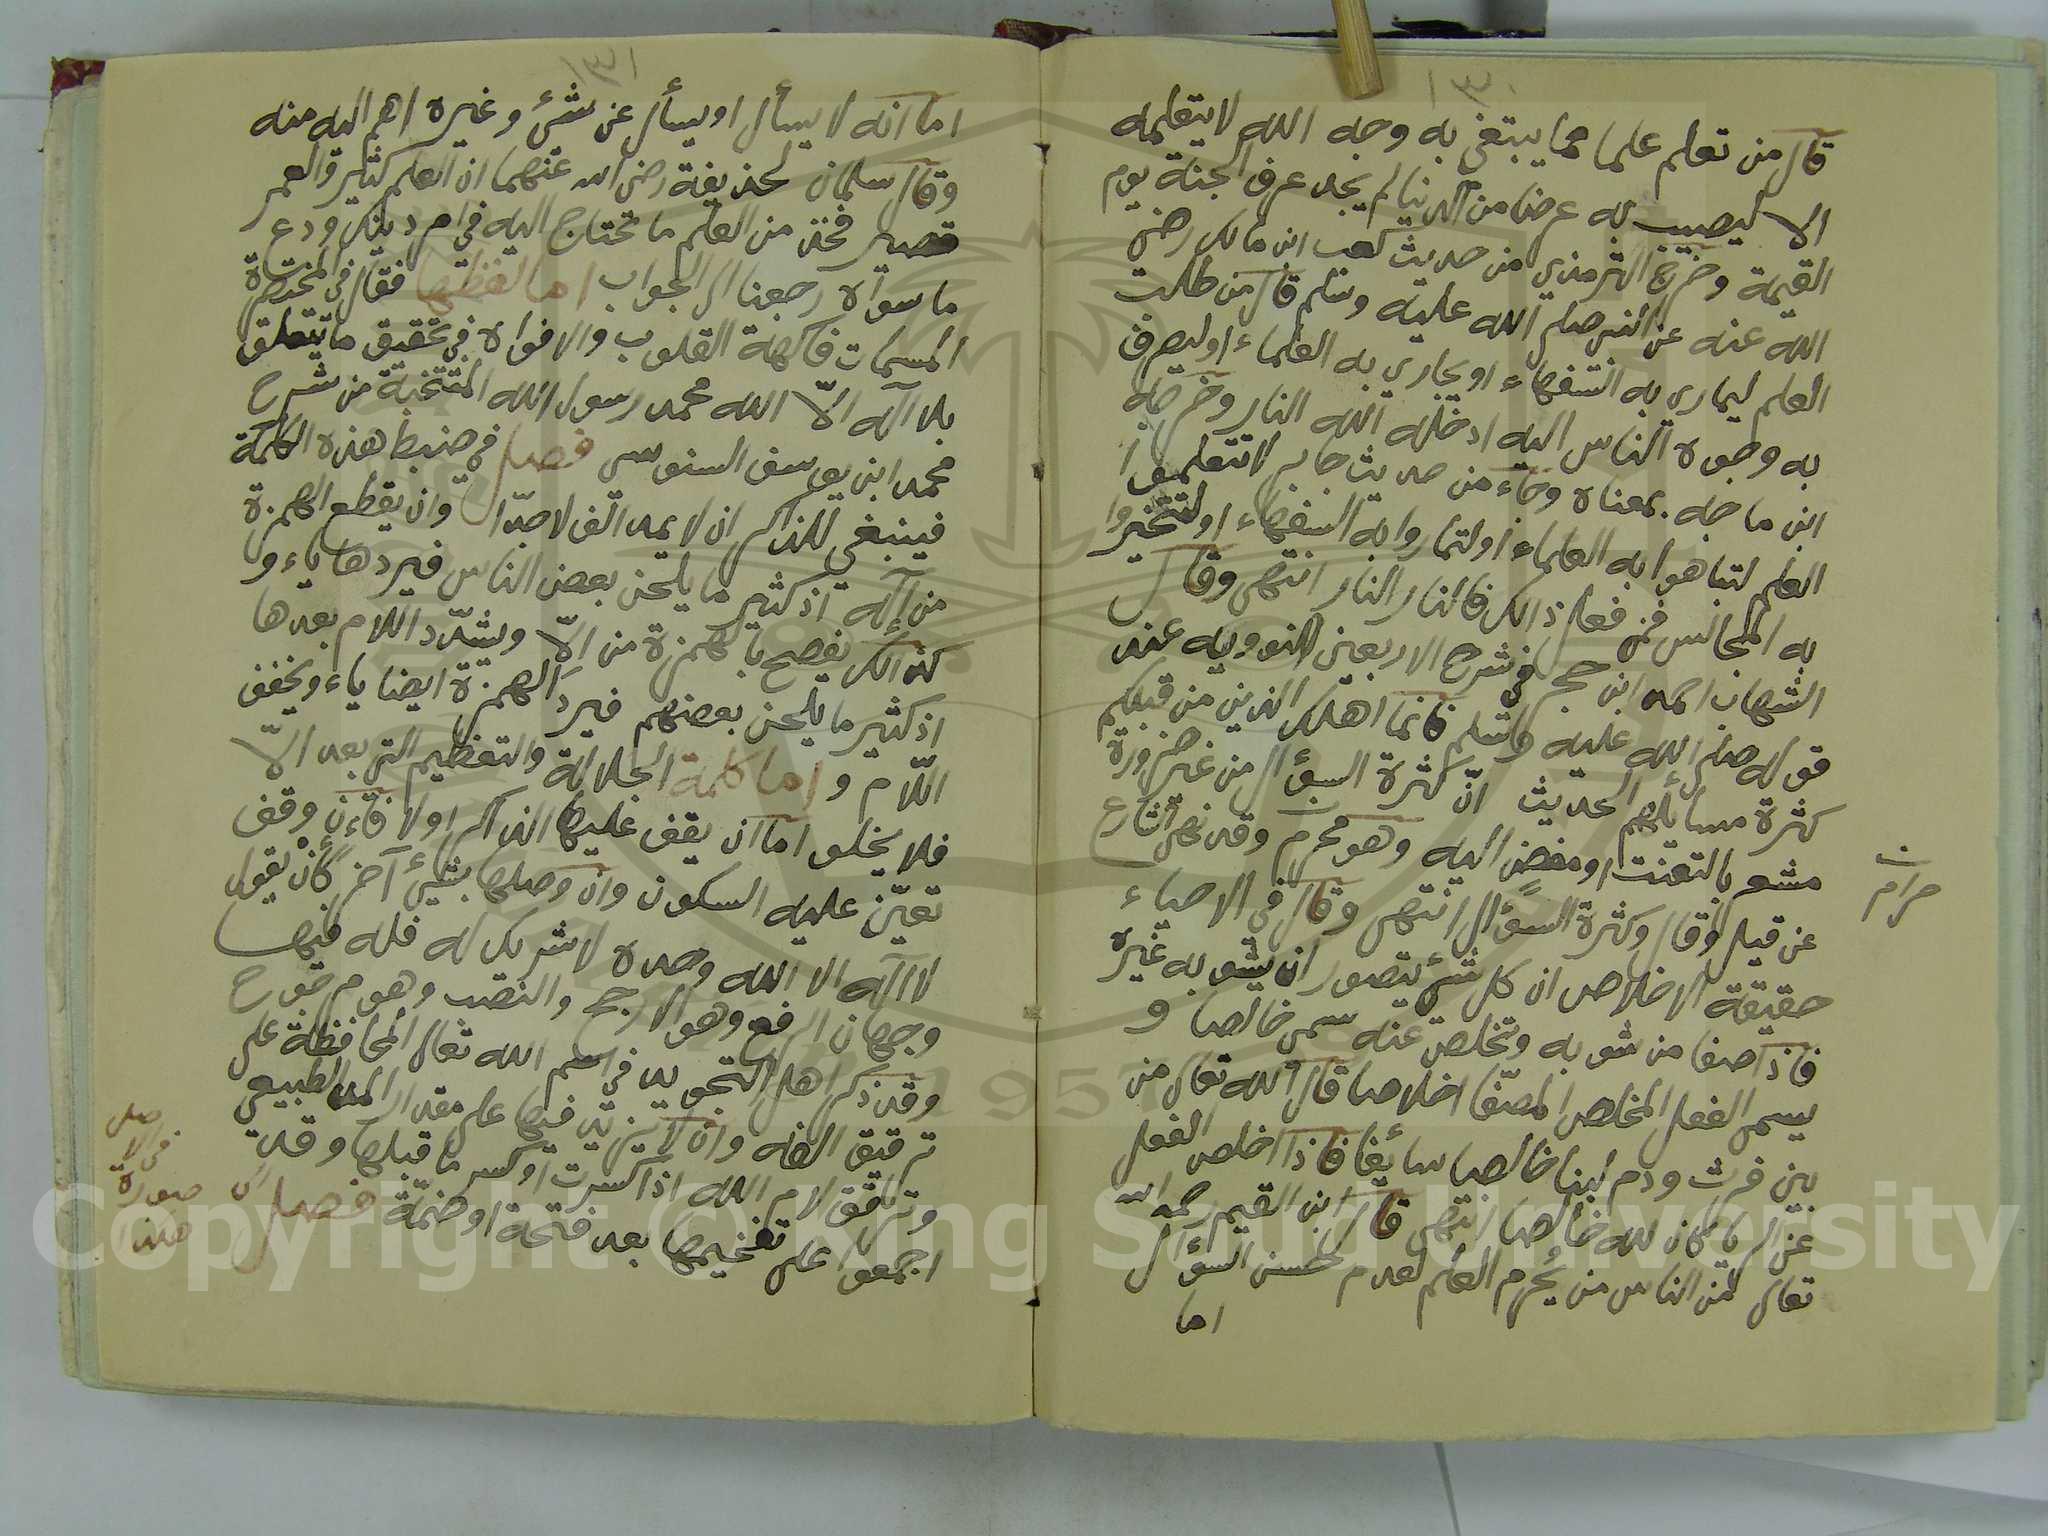 ١٣٠
قال من تعلم علما مما يبتغي به وجه الله لا يتعلمه
الا ليصيب به عرضا من الدنيا لم يجد عرف الجنة يوم
القيمة وخرج الترمذي من حديث كعب ابن مالك رضي
الله عنه عن النبي صلى الله عليه وسلم قال من طلب
العلم ليماري به السفهاء او يجاري به العلماء او ليصرف
به وجوه الناس اليه ادخله الله النار وخرجه
ابن ماجه بمعناه وجاء من حديث جابر لا تتعلموا
العلم لتباهوا به العلماء او لتماروا به السفهاء او لتتخيروا
به المجالس فمن فعل ذالك فالنار النار انتهى وقال
الشهاب احمد ابن حجر في شرح الاربعين النوويه عند
قوله صلى الله عليه وسلم فانما اهلك الذين من قبلكم
كثرة مسايلهم الحديث انّ كثرة السؤال من غير ضرورة
مشعر بالتعنت او مفض اليه وهو محرم وقد نهى الشارع
حرام
عن قيل وقال وكثرة السؤال انتهى وقال في الاحياء
حقيقة الاخلاص ان كل شيء يتصور ان يشوبه غيره
فاذا صفا من شوبه وتخلص عنه سمى خالصا و
يسمى الفعل المخلص المصفّا اخلاصا قال الله تعالى من
بين فرث ودم لبنا خالصا سايغا فاذا اخلص الفعل
عن الريا كان لله خالصا انتهى قال ابن القيم رحمه الله
تعالى فمن الناس من يُحرم العلم لعدم حسن السؤال
اما
١٣١
اما انه لا يسأل او يسأل عن شيء وغيره اهم اليه منه
وقال سلمان لحذيفة رضى الله عنهما ان العلم كثير والعمر
قصير فخذ من العلم ما تحتاج اليه في امر دينك ودع
ما سواه رجعنا الى الجواب اما لفظها فقال في المختصرة
المسمات فاكهة القلوب والافواه في تحقيق ما يتعلق
بلا اله الّا الله محمد رسول الله المنتخبة من شرح
محمد ابن يوسف السنوسى فصل في ضبط هذه الكلمة
فينبغي للذاكر ان لا يمد الف لا جدّا وان يقطع الهمزة
من اله اذ كثير ما يلحن بعض الناس فيردها ياء و
كذالك يفصح بالهمزة من الّا ويشدّد اللام بعدها
اذ كثير ما يلحن بعضهم فيردّ الهمزة ايضا ياء ويخفف
اللّام و اما كلمة الجلالة والتعظيم التى بعد الّا
فلا يخلو اما ان يقف عليها الذاكر او لا فان وقف
تعيّن عليه السكون وان وصلها بشيء آخر كان يقول
لا اله الا الله وحده لا شريك له فله فيها
وجهان الرفع وهو الارجح والنصب وهو مرجوح
وقد ذكر اهل التجويد في اسم الله تعالى المحافظة على
ترقيق الفه وان لا يزيد فيها على مقدار المد الطبيعي
وترقق لام الله اذا كسرت او كسر ما قبلها وقد
اجمعوا على تفخيمها بعد فتحة او ضمّة فصل
في الاصل
صورة
هكذا
Copyright © King Saud University
1957